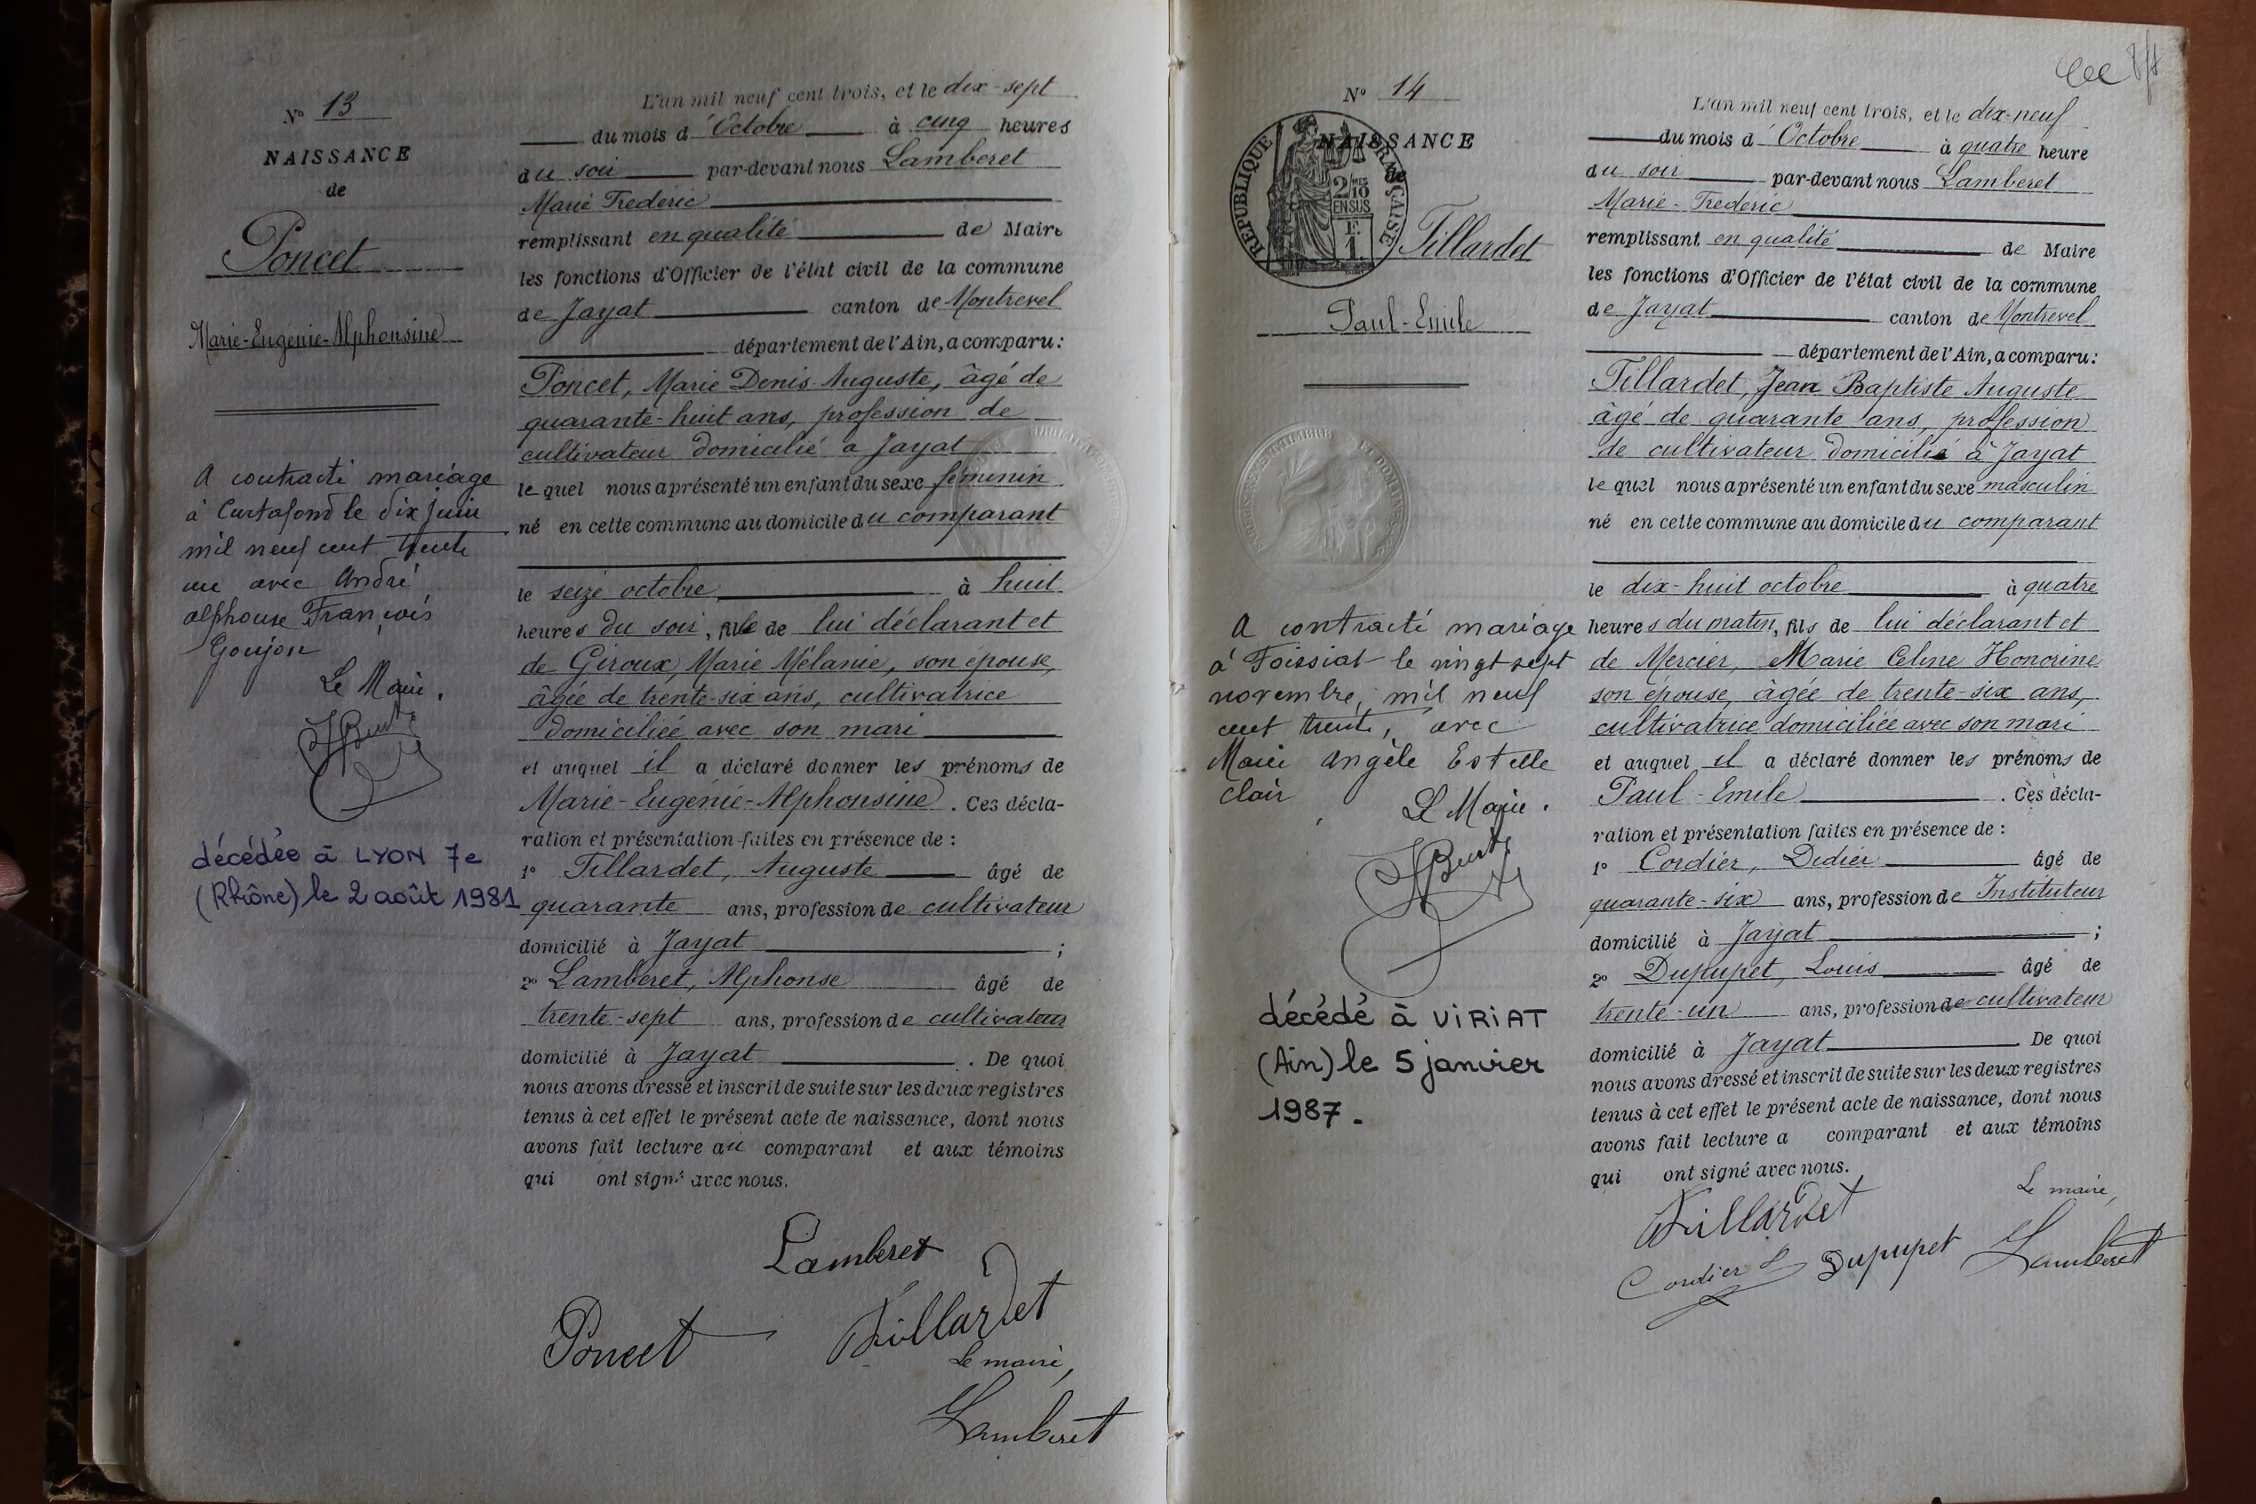 Nº 13
NAISSANCE
de
Poncet
Marie-Eugenie-Alphonsine
A contracté mariage
à Curtafond le dix juin
mil neuf cent trente
un avec André
alphonse François
Goujon
Le Maire.
décédée à LYON 7e
(Rhône) le 2 août 1981
L'an mil neuf cent trois, et le dix-sept
du mois d'Octobre à cinq heures
du soir par-devant nous Lamberet
Marie Frederic
remplissant en qualité de Maire
les fonctions d'Officier de l'état civil de la commune
de Jayat canton de Montrevel
département de l'Ain, a comparu:
Poncet, Marie Denis Auguste, âgé de
quarante-huit ans, profession de
cultivateur domicilié a Jayat
le quel nous a présenté un enfant du sexe féminin
né en cette commune au domicile du comparant
le seize octobre à huit
heures du soir, fille de lui déclarant et
de Giroux, Marie Mélanie, son épouse,
âgée de trente-six ans, cultivatrice
domiciliée avec son mari
et auquel il a déclaré donner les prénoms de
Marie-Eugénie-Alphonsine. Ces décla-
ration et présentation faites en présence de :
1º Tillardet, Auguste âgé de
quarante ans, profession de cultivateur
domicilié à Jayat ;
2º Lamberet, Alphonse âgé de
trente-sept ans, profession de cultivateur
domicilié à Jayat . De quoi
nous avons dressé et inscrit de suite sur les deux registres
tenus à cet effet le présent acte de naissance, dont nous
avons fait lecture au comparant et aux témoins
qui ont signé avec nous.
Lamberet
Poncet Tillardet
Le maire,
Lamberet
Nº 14
NAISSANCE
de
REPUBLIQUE FRANÇAISE
2/10
EN SUS
1F.
Tillardet
Paul-Emile
A contracté mariage
à Foissiat le vingt sept
novembre, mil neuf
cent trente, avec
Marie Angèle Estelle
Clair
Le Maire.
décédé à VIRIAT
(Ain) le 5 janvier
1987.
L'an mil neuf cent trois, et le dix-neuf
du mois d'Octobre à quatre heure
du soir par-devant nous Lamberet
Marie-Frederic
remplissant en qualité de Maire
les fonctions d'Officier de l'état civil de la commune
de Jayat canton de Montrevel
département de l'Ain, a comparu:
Tillardet, Jean Baptiste Auguste
âgé de quarante ans, profession
de cultivateur domicilié à Jayat
le quel nous a présenté un enfant du sexe masculin
né en cette commune au domicile du comparant
le dix-huit octobre à quatre
heures du matin, fils de lui déclarant et
de Mercier, Marie Celine Honorine
son épouse, âgée de trente-six ans,
cultivatrice domiciliée avec son mari
et auquel il a déclaré donner les prénoms de
Paul-Emile . Ces décla-
ration et présentation faites en présence de :
1º Cordier, Didier âgé de
quarante-six ans, profession de Instituteur
domicilié à Jayat ;
2º Dupupet, Louis âgé de
trente-un ans, profession de cultivateur
domicilié à Jayat De quoi
nous avons dressé et inscrit de suite sur les deux registres
tenus à cet effet le présent acte de naissance, dont nous
avons fait lecture a comparant et aux témoins
qui ont signé avec nous.
Tillardet Le maire,
Cordier Dupupet Lamberet